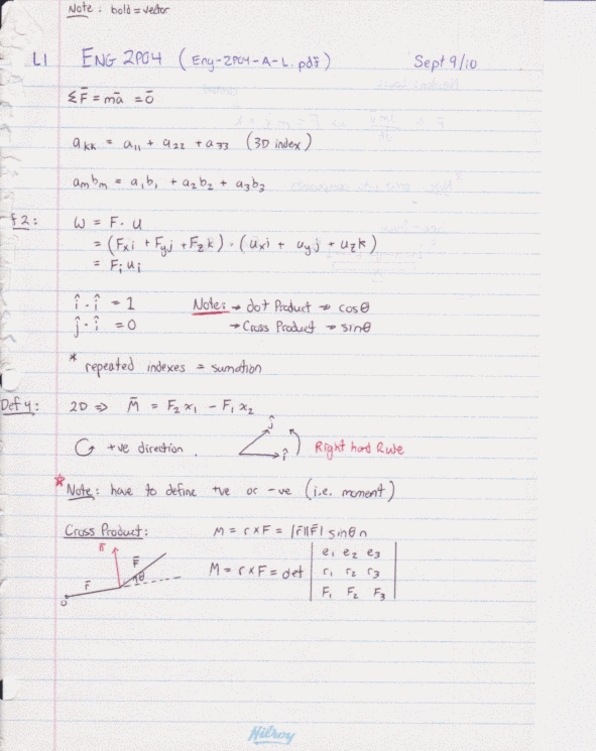 Note: bold = vector
L1 ENG 2P04 (Eng-2P04-A-L.pdf) Sept 9/10
ΣF̄ = mā = 0̄
aₖₖ = a₁₁ + a₂₂ + a₃₃ (3D index)
aₘbₘ = a₁b₁ + a₂b₂ + a₃b₃
f2: W = F · u
= (Fₓi + Fᵧj + F_z k) · (uₓi + uᵧj + u_z k)
= Fᵢuᵢ
î · î = 1 Note: → dot Product ⇒ cosθ
ĵ · î = 0 → Cross Product ⇒ sinθ
* repeated indexes = sumation
Def 4: 2D ⇒ M̄ = F₂x₁ − F₁x₂
+ve direction. ĵ î Right hand Rule
* Note: have to define +ve or -ve (i.e. moment)
Cross Product: M = r × F = |r̄||F̄| sinθ n
F̄ θ r̄ o
M = r × F = det | e₁ e₂ e₃
r₁ r₂ r₃
F₁ F₂ F₃ |
Hilroy